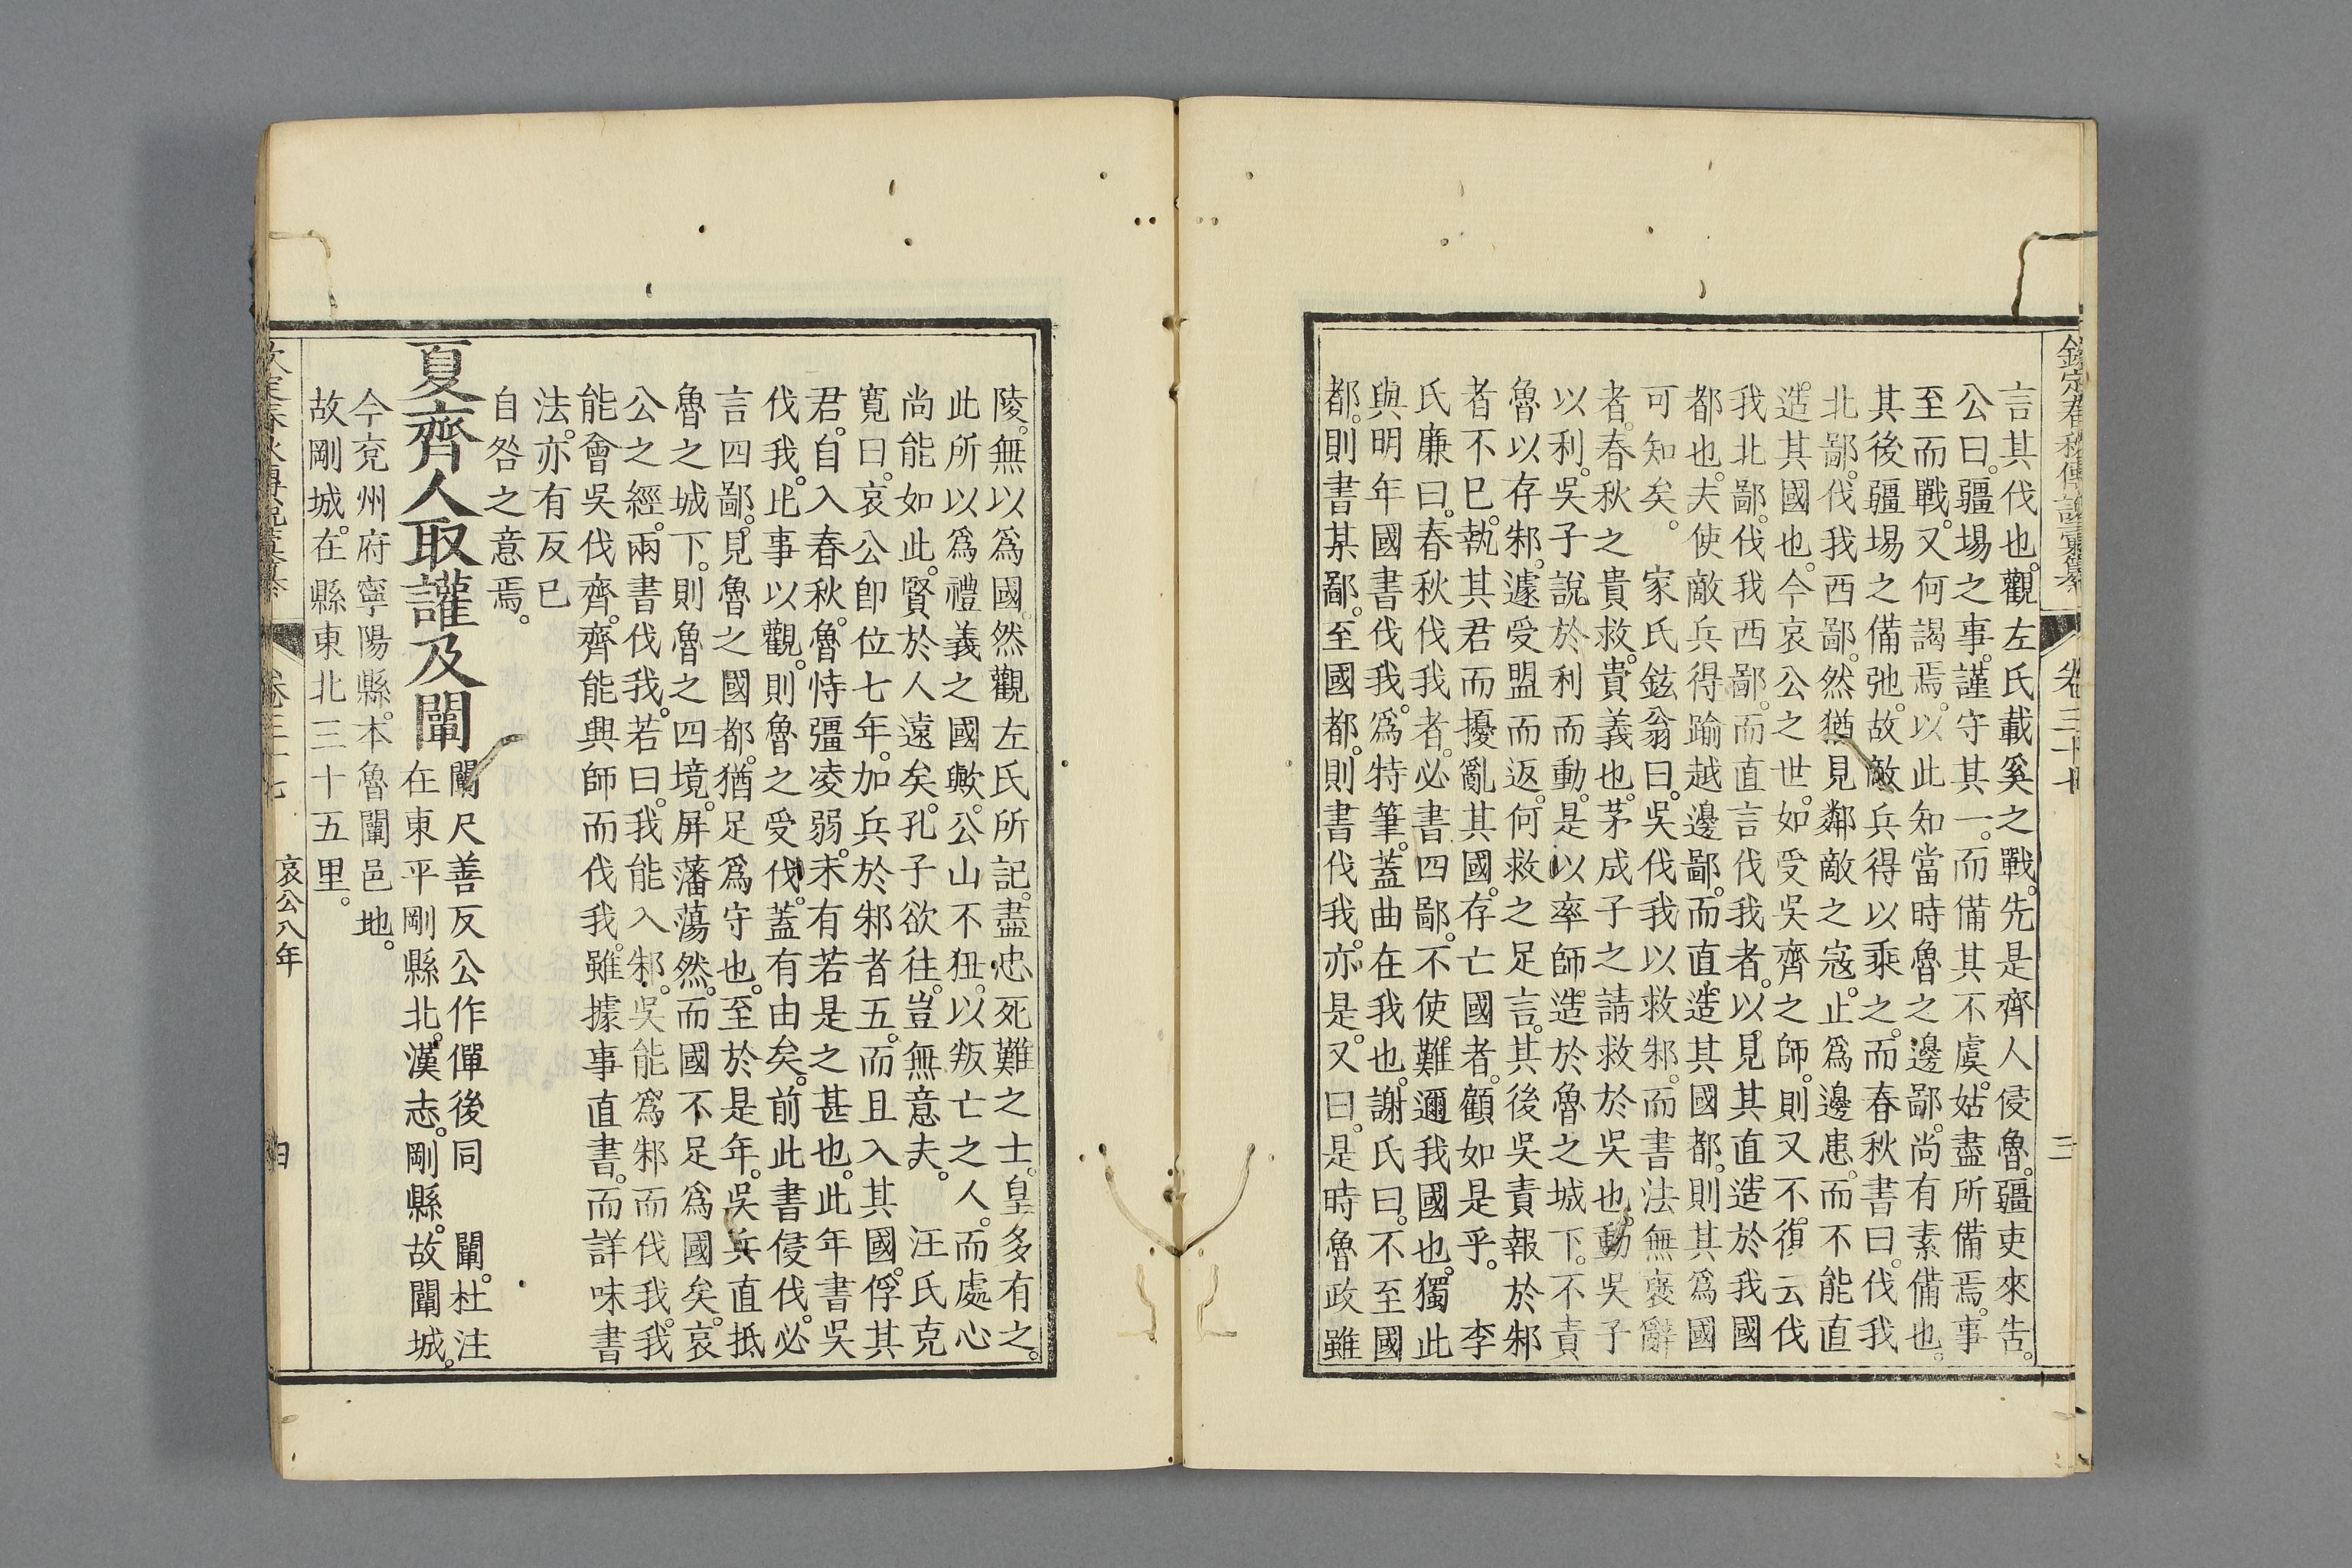 欽定春秋傳說彙纂 卷三十七 三
言其伐也。觀左氏載奚之戰。先是齊人侵魯。疆吏來告。
公曰。疆埸之事。謹守其一。而備其不虞。姑盡所備焉。事
至而戰。又何謁焉。以此知當時魯之邊鄙。尚有素備也。
其後疆埸之備弛。故敵兵得以乘之。而春秋書曰。伐我
北鄙。伐我西鄙。然猶見鄰敵之寇。止爲邊患。而不能直
造其國也。今哀公之世。如受吳齊之師。則又不復云伐
我北鄙。伐我西鄙。而直言伐我者。以見其直造於我國
都也。夫使敵兵得踰越邊鄙。而直造其國都。則其爲國
可知矣。 家氏鉉翁曰。吳伐我以救邾。而書法無襃辭
者。春秋之貴救。貴義也。茅成子之請救於吳也。動吳子
以利。吳子說於利而動。是以率師造於魯之城下。不責
魯以存邾。遽受盟而返。何救之足言。其後吳責報於邾
者不已。執其君而擾亂其國。存亡國者。顧如是乎。 李
氏廉曰。春秋伐我者。必書四鄙。不使難邇我國也。獨此
與明年國書伐我。爲特筆。蓋曲在我也。謝氏曰。不至國
都。則書某鄙。至國都。則書伐我。亦是。又曰。是時魯政雖
陵。無以爲國。然觀左氏所記。盡忠死難之士。皇多有之。
此所以爲禮義之國歟。公山不狃。以叛亡之人。而處心
尚能如此。賢於人遠矣。孔子欲往。豈無意夫。 汪氏克
寬曰。哀公卽位七年。加兵於邾者五。而且入其國。俘其
君。自入春秋。魯恃彊凌弱。未有若是之甚也。此年書吳
伐我。比事以觀。則魯之受伐。蓋有由矣。前此書侵伐。必
言四鄙。見魯之國都。猶足爲守也。至於是年。吳兵直抵
魯之城下。則魯之四境。屏藩蕩然。而國不足爲國矣。哀
公之經。兩書伐我。若曰。我能入邾。吳能爲邾而伐我。我
能會吳伐齊。齊能興師而伐我。雖據事直書。而詳味書
法。亦有反已
自咎之意焉。
夏齊人取讙及闡
闡尺善反公作僤後同 闡。杜注
在東平剛縣北。漢志。剛縣。故闡城。
今兗州府寧陽縣。本魯闡邑地。
故剛城。在縣東北三十五里。
欽定春秋傳說彙纂 卷三十七 哀公八年 四